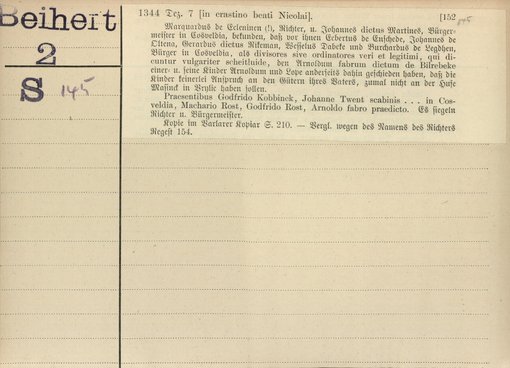 Beiheft
2
S 145
1344 Dez. 7 [in crastino beati Nicolai]. [152
145
Marquardus de Leleninen (!), Richter, u. Johannes dictus Martines, Bürger-
meister in Cosveldia, bekunden, daß vor ihnen Ecbertus de Enschede, Johannes de
Oltena, Gerardus dictus Rikeman, Wesselus Dabeke und Burchardus de Legdhen,
Bürger in Cosveldia, als divisores sive ordinatores veri et legitimi, qui di-
cuntur vulgariter scheitluide, den Arnoldum fabrum dictum de Bilrebeke
einer- u. seine Kinder Arnoldum und Lope anderseits dahin geschieden haben, daß die
Kinder keinerlei Anspruch an den Gütern ihres Vaters, zumal nicht an der Hufe
Masinck in haben sollen.
Praesentibus Godfrido Kobbinck, Johanne Twent scabinis . . . in Cos-
veldia, Machario Rost, Godfrido Rost, Arnoldo fabro praedicto. Es siegeln
Richter u. Bürgermeister.
Kopie im Varlarer Kopiar S. 210. — Vergl. wegen des Namens des Richters
Regest 154.